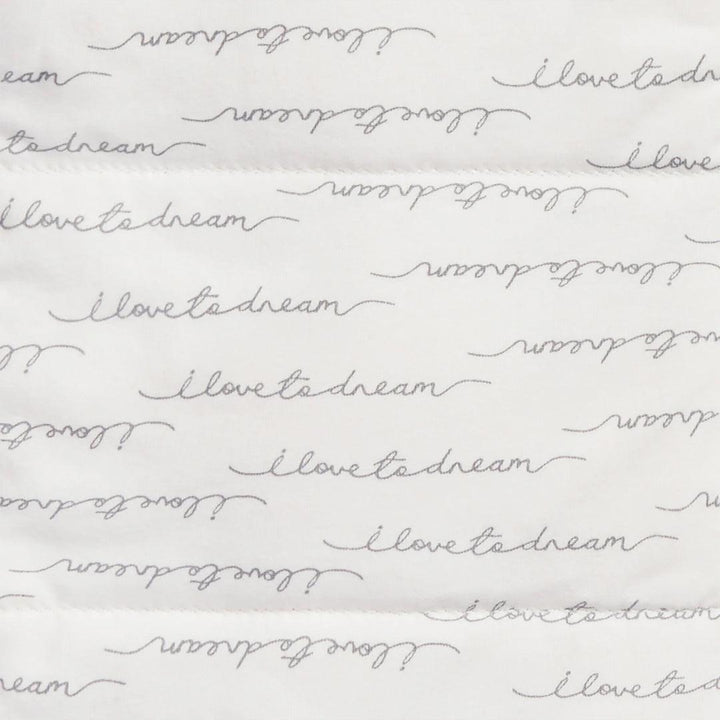 i love to dream
eam
i love to dr
i love to dream
to dream
i love
i love to dream
i love to dream
i love to dream
i love to dream
i love to dream
i l
i love to dream
i love to dream
dream
i love to
i love to dream
i love to dream
i love to dream
i love to dream
i love to dream
i love to dream
ream
i love to d